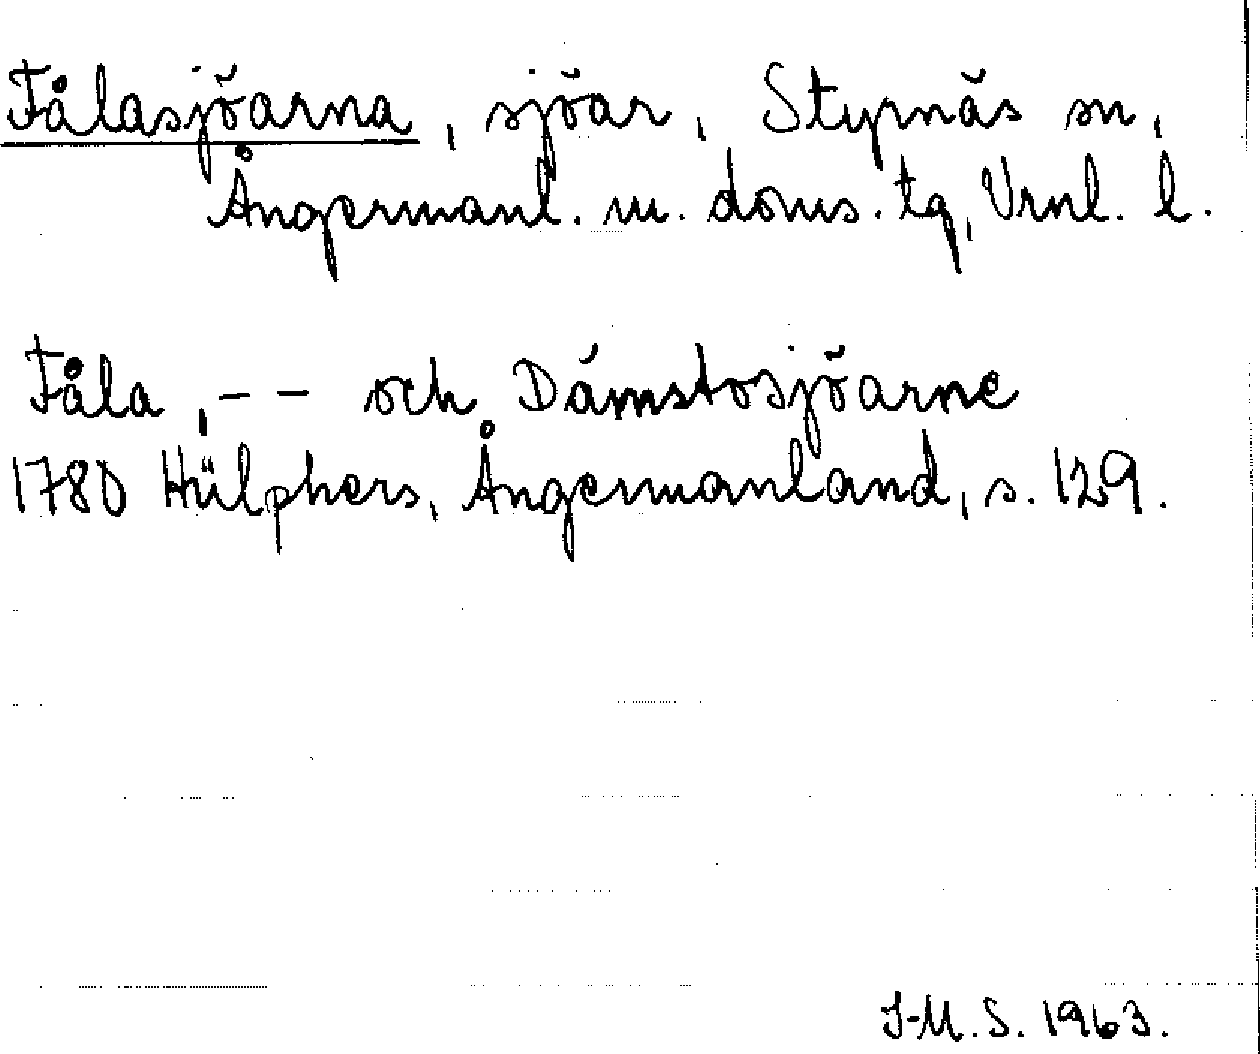 Fålasjöarna, sjöar, Styrnäs sn,
Ångermanl. m. doms. tg, Vrnl. l.
Fåla, – – och Dämstosjöarne
1780 Hülphers, Ångermanland, s. 129.
I-M. S. 1963.